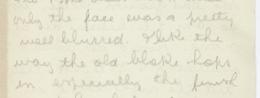 only the face was a pretty
well blurred. I like the
way the old bloke hops
in especially the finish